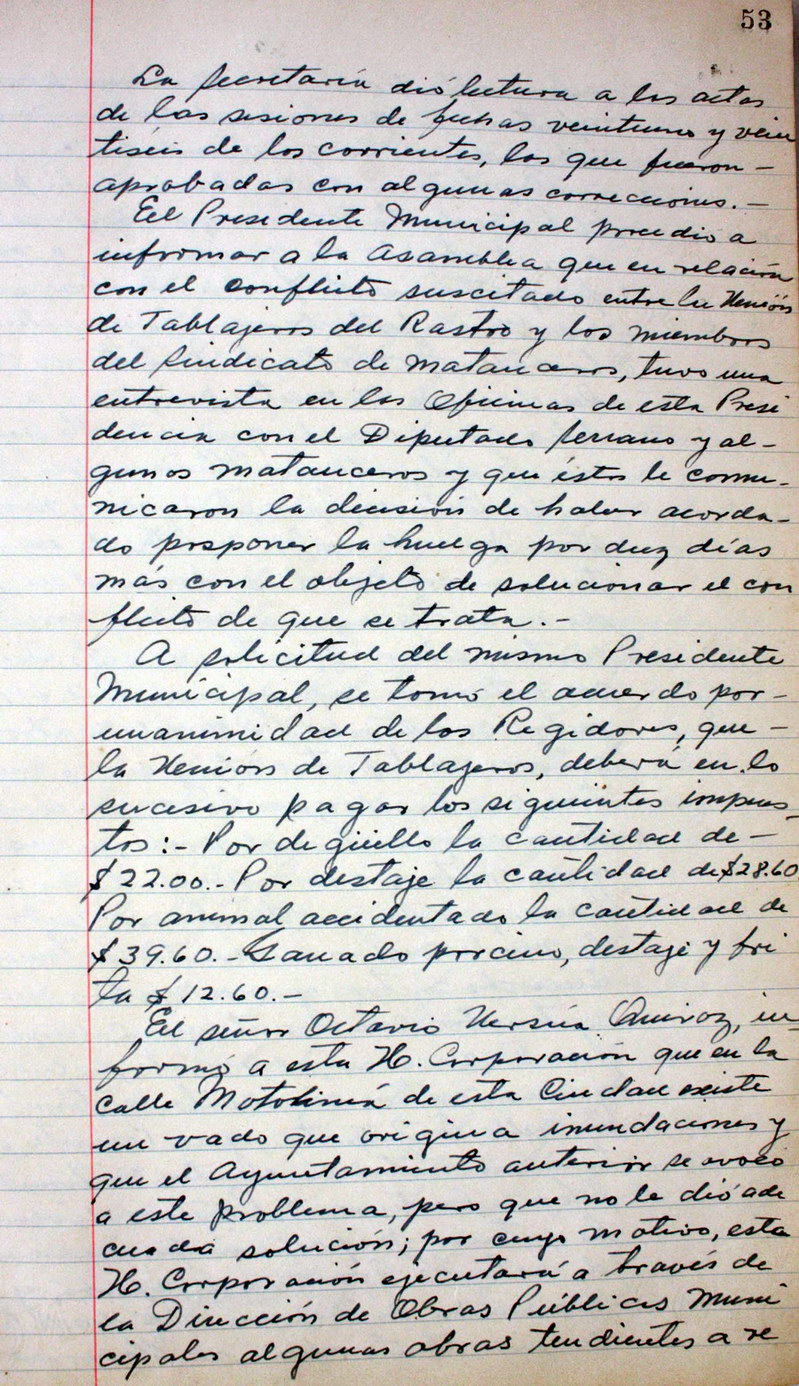 53
La Secretaría dió lectura a las actas
de las sesiones de fechas veintiuno y vein
tiséis de los corrientes, las que fueron —
aprobadas con algunas correcciones. —
El Presidente Municipal procedió a
informar a la Asamblea que en relación
con el conflicto suscitado entre la Unión
de Tablajeros del Rastro y los miembros
del Sindicato de Matanceros, tuvo una
entrevista en las Oficinas de esta Presi
dencia con el Diputado Serrano y al-
gunos matanceros y que éstos le comu-
nicaron la decisión de haber acorda-
do posponer la huelga por diez días
más con el objeto de solucionar el con
flicto de que se trata. -
A solicitud del mismo Presidente
Municipal, se tomó el acuerdo por -
unanimidad de los Regidores, que -
la Unión de Tablajeros, deberá en lo
sucesivo pagar los siguientes impues-
tos:- Por degüello la cantidad de —
$22.00.- Por destaje la cantidad de $28.60
Por animal accidentado la cantidad de
$39.60.- Ganado porcino, destaje y fri
la $12.60.-
El señor Octavio Quiroz, in-
formó a esta H. Corporación que en la
calle Motolinía de esta Ciudad existe
un vado que origina inundaciones y
que el Ayuntamiento anterior se avocó
a este problema, pero que no le dió ade
cuada solución; por cuyo motivo, esta
H. Corporación ejecutará a través de
la Dirección de Obras Públicas Muni
cipales algunas obras tendientes a re